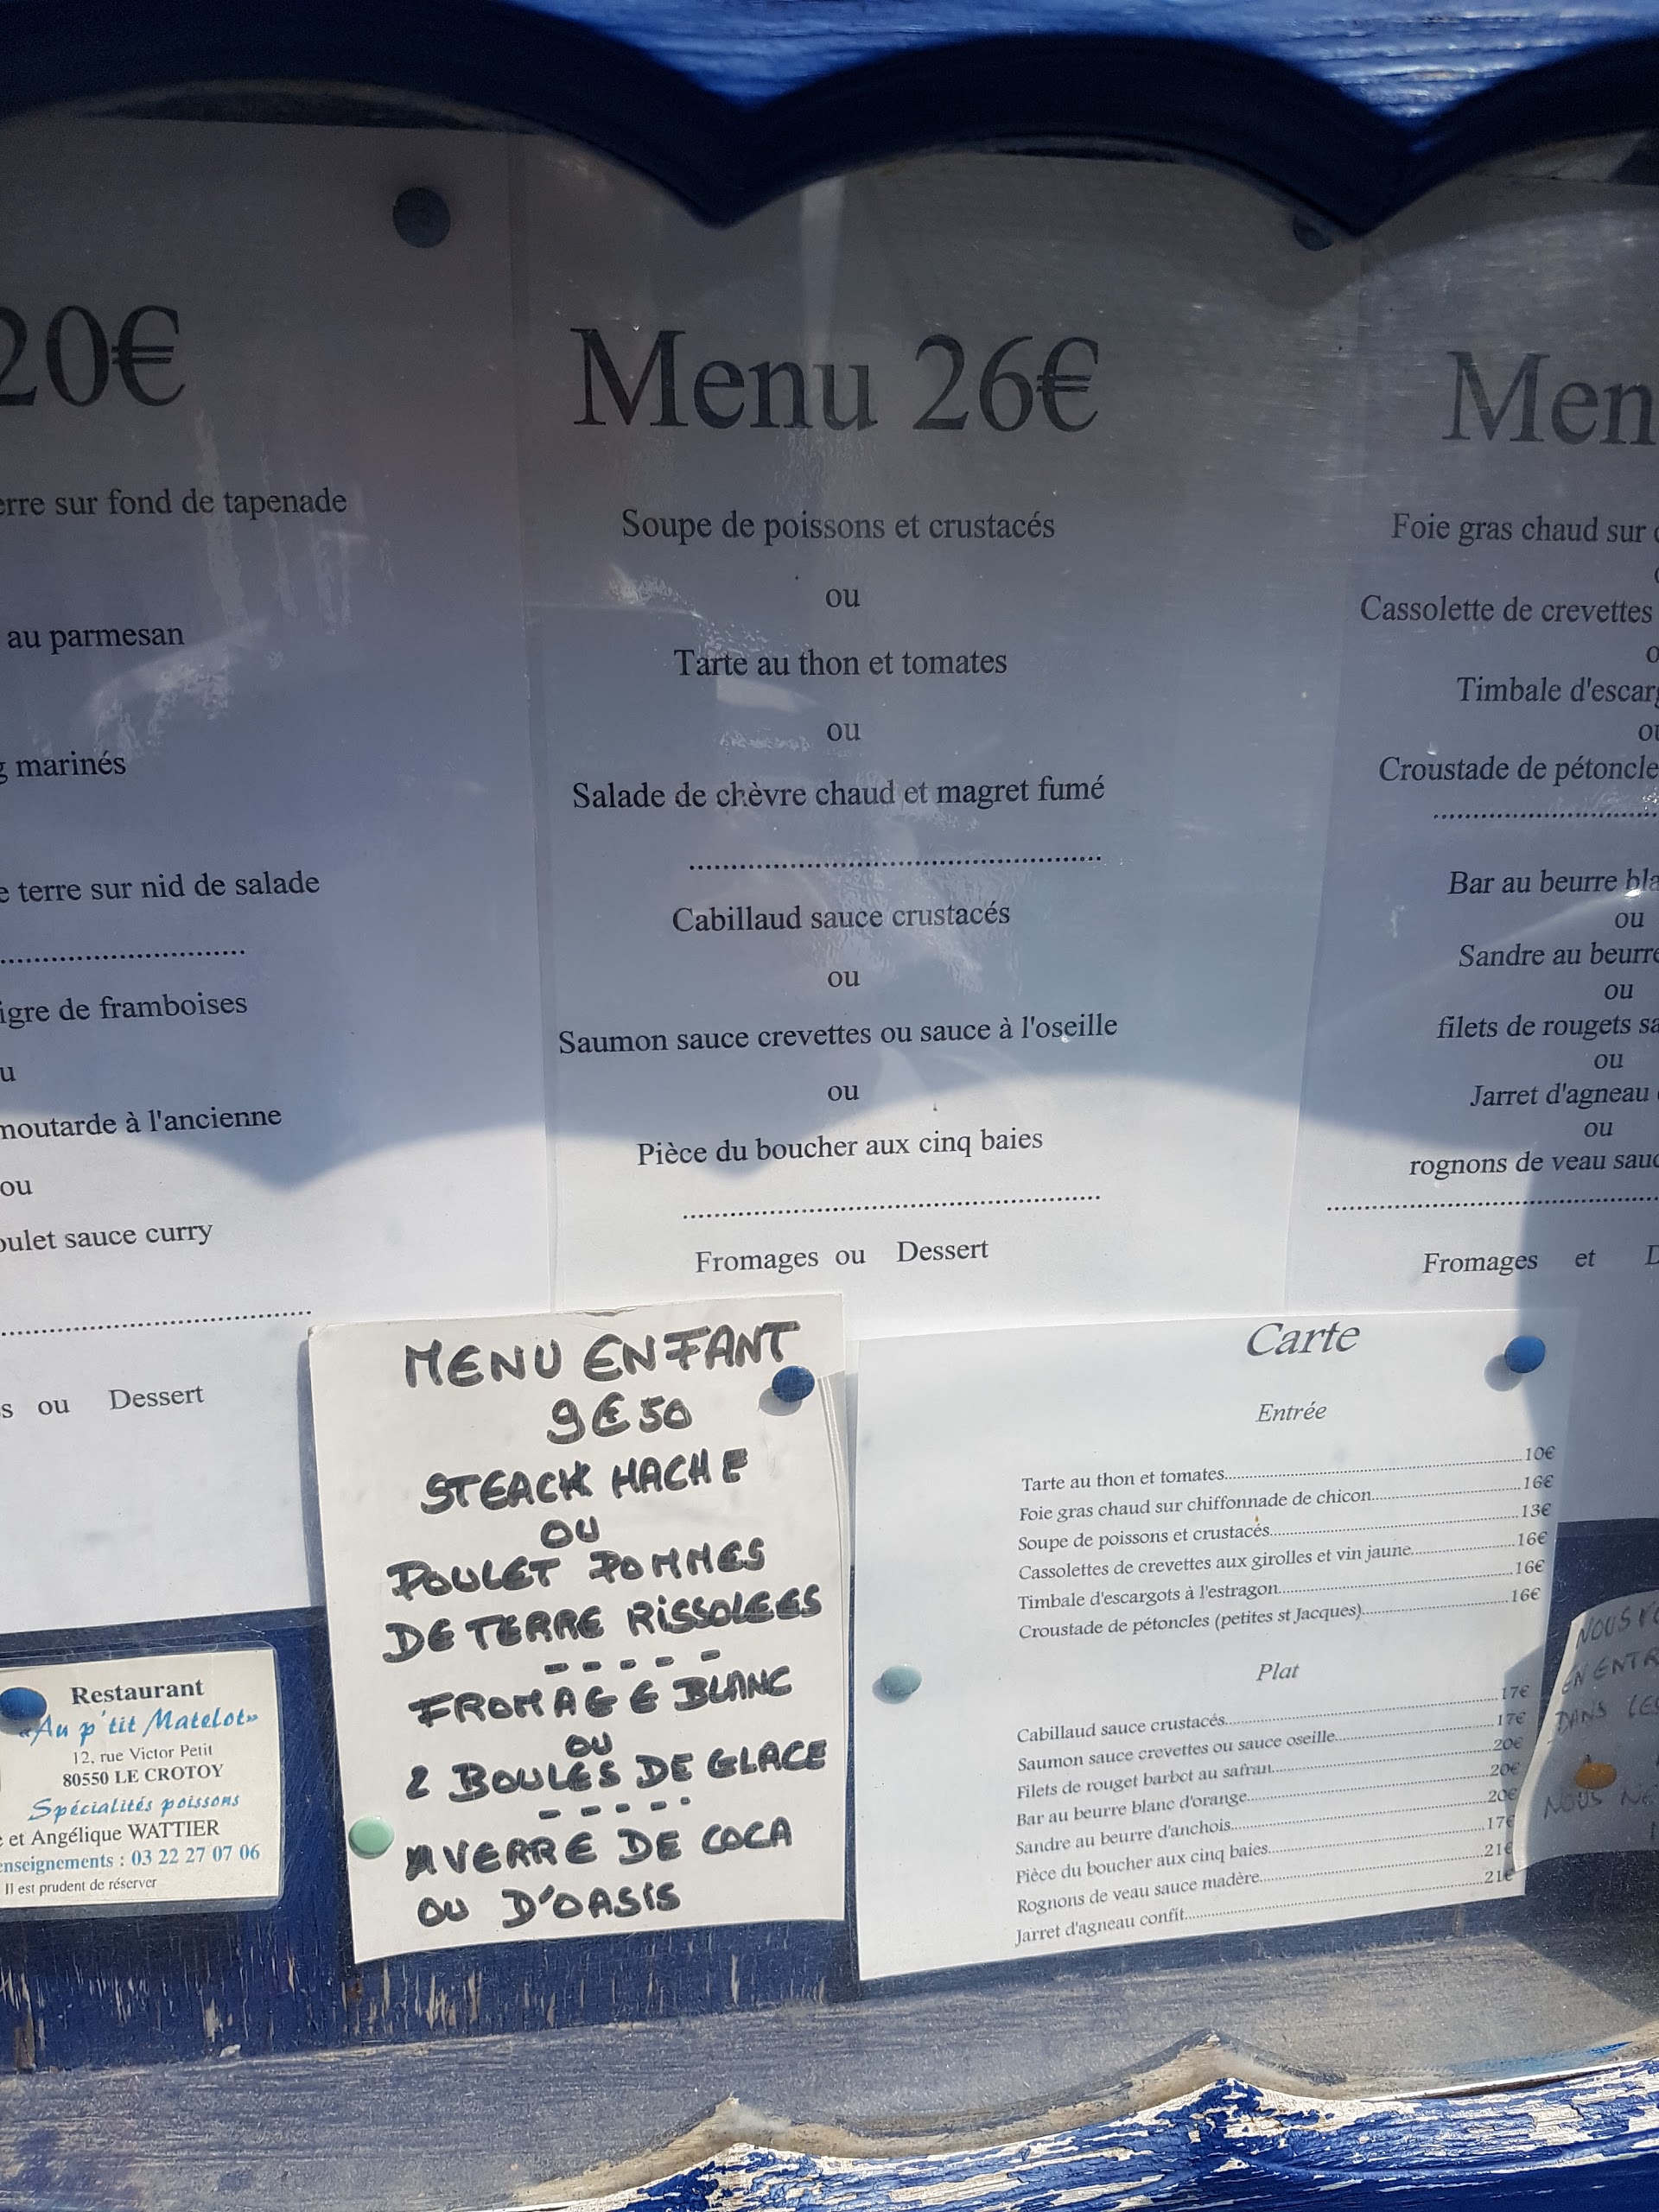 20€
sur fond de tapenade
au parmesan
marinés
terre sur nid de salade
de framboises
moutarde à l'ancienne
ou
sauce curry
ou Dessert
Menu 26€
Soupe de poissons et crustacés
ou
Tarte au thon et tomates
ou
Salade de chèvre chaud et magret fumé
Cabillaud sauce crustacés
ou
Saumon sauce crevettes ou sauce à l'oseille
ou
Pièce du boucher aux cinq baies
Fromages ou Dessert
Men
Foie gras chaud sur
Cassolette de crevettes
Timbale d'escarg
ou
Croustade de pétoncle
Bar au beurre bla
ou
Sandre au beurre
ou
filets de rougets sa
ou
Jarret d'agneau
ou
rognons de veau sauc
Fromages et D
MENU ENFANT
9€50
STEACK HACHE
OU
POULET POMMES
DE TERRE RISSOLEES
- - - - -
FROMAGE BLANC
OU
2 BOULES DE GLACE
- - - - -
VERRE DE COCA
OU D'OASIS
Carte
Entrée
Tarte au thon et tomates 10€
Foie gras chaud sur chiffonnade de chicon 16€
Soupe de poissons et crustacés 13€
Cassolettes de crevettes aux girolles et vin jaune 16€
Timbale d'escargots à l'estragon 16€
Croustade de pétoncles (petites st Jacques) 16€
Plat
Cabillaud sauce crustacés 17€
Saumon sauce crevettes ou sauce oseille 17€
Filets de rouget barbet au safran 20€
Bar au beurre blanc d'orange 20€
Sandre au beurre d'anchois 20€
Pièce du boucher aux cinq baies 17€
Rognons de veau sauce madère 21€
Jarret d'agneau confit 21€
Restaurant
«Au p'tit Matelot»
12, rue Victor Petit
80550 LE CROTOY
Spécialités poissons
et Angélique WATTIER
enseignements : 03 22 27 07 06
Il est prudent de réserver
NOUS
EN ENTR
DANS LES
NOUS NE